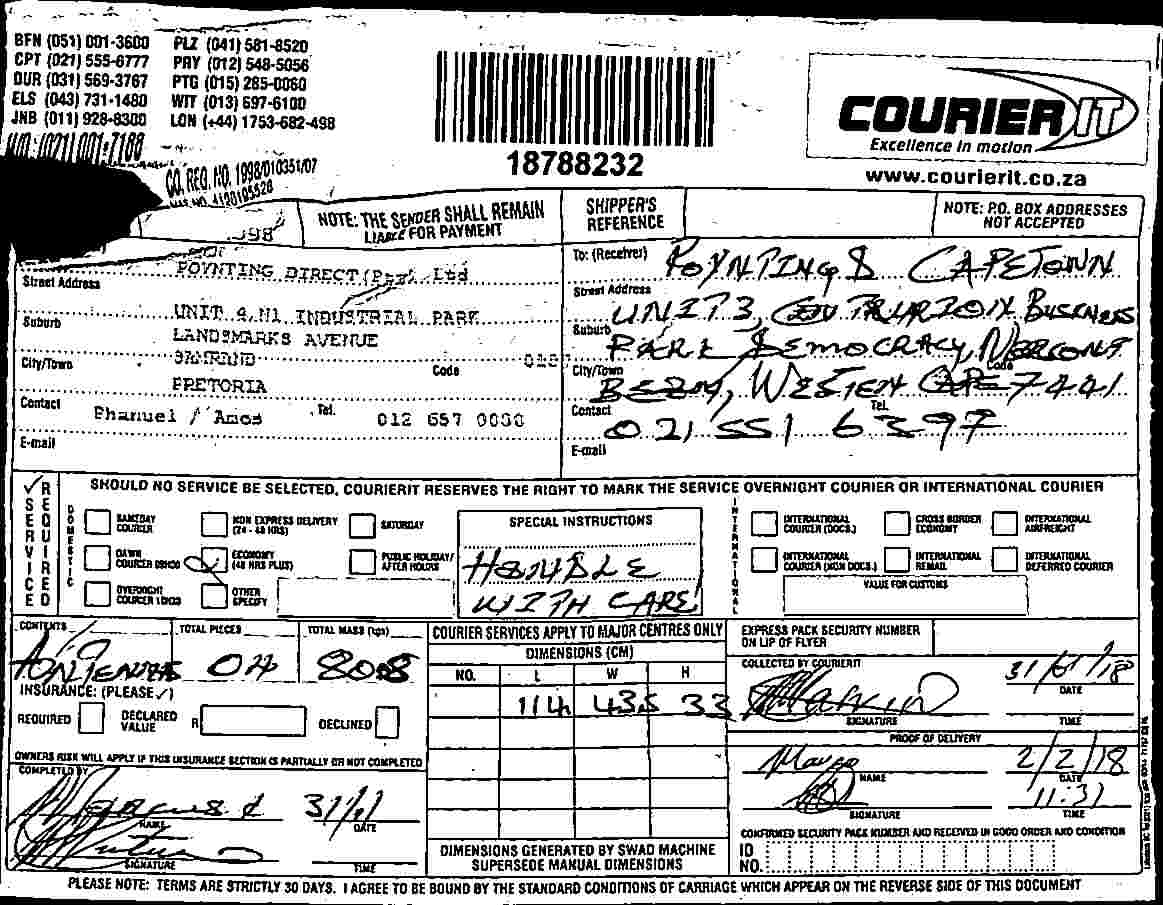 BFN (051) 001-3600 PLZ (041) 581-8520
CPT (021) 555-6777 PRY (012) 548-5056
DUR (031) 569-3767 PTG (015) 285-0060
ELS (043) 731-1480 WIT (013) 697-6100
JNB (011) 928-8300 LON (+44) 1753-682-498
CO. REG. NO. 1998/010351/07
18788232
COURIER IT
Excellence in motion
www.courierit.co.za
NOTE: THE SENDER SHALL REMAIN
LIABLE FOR PAYMENT
SHIPPER'S
REFERENCE
NOTE: P.O. BOX ADDRESSES
NOT ACCEPTED
POYNTING DIRECT (Pty) Ltd
Street Address
UNIT 4 N1 INDUSTRIAL PARK
Suburb
LANDSMARKS AVENUE
City/Town SAMRAND Code
PRETORIA
Contact Phanuel / Amos Tel. 012 657 0000
E-mail
To: (Receiver) POYNTING CAPETOWN
Street Address
UNIT 3, BUSINESS
Suburb
PARK DEMOCRACY
City/Town Code
WESTERN CAPE 7441
Contact Tel.
021 551 6397
E-mail
SERVICE REQUIRED
SHOULD NO SERVICE BE SELECTED, COURIERIT RESERVES THE RIGHT TO MARK THE SERVICE OVERNIGHT COURIER OR INTERNATIONAL COURIER
DOMESTIC
SAMEDAY COURIER
NON EXPRESS DELIVERY (24 - 48 HRS)
SATURDAY
DAWN COURIER 09H00
ECONOMY (48 HRS PLUS)
PUBLIC HOLIDAY/ AFTER HOURS
OVERNIGHT COURIER 10H00
OTHER SPECIFY
SPECIAL INSTRUCTIONS
HANDLE
WITH CARE
INTERNATIONAL
INTERNATIONAL COURIER (DOCS.)
CROSS BORDER ECONOMY
INTERNATIONAL AIRFREIGHT
INTERNATIONAL COURIER (NON DOCS.)
INTERNATIONAL REMAIL
INTERNATIONAL DEFERRED COURIER
VALUE FOR CUSTOMS
CONTENTS TOTAL PIECES TOTAL MASS (kgs)
ANTENNAS 04
INSURANCE: (PLEASE ✓)
REQUIRED DECLARED VALUE R DECLINED
OWNERS RISK WILL APPLY IF THIS INSURANCE SECTION IS PARTIALLY OR NOT COMPLETED
COMPLETED BY
NAME
DATE
SIGNATURE
TIME
COURIER SERVICES APPLY TO MAJOR CENTRES ONLY
DIMENSIONS (CM)
NO. L W H
114 43,5 33
DIMENSIONS GENERATED BY SWAD MACHINE
SUPERSEDE MANUAL DIMENSIONS
EXPRESS PACK SECURITY NUMBER
ON LIP OF FLYER
COLLECTED BY COURIERIT
31/01/18
DATE
SIGNATURE TIME
PROOF OF DELIVERY
2/2/18
NAME DATE
11:31
SIGNATURE TIME
CONFIRMED SECURITY PACK NUMBER AND RECEIVED IN GOOD ORDER AND CONDITION
ID
NO.
PLEASE NOTE: TERMS ARE STRICTLY 30 DAYS. I AGREE TO BE BOUND BY THE STANDARD CONDITIONS OF CARRIAGE WHICH APPEAR ON THE REVERSE SIDE OF THIS DOCUMENT